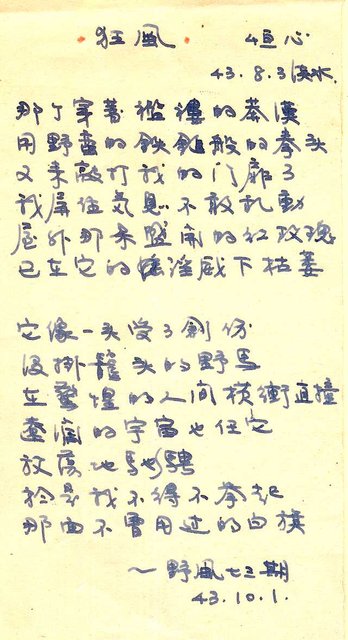 狂風 恒心
43.8.3淡水
那个穿著襤褸的莽漢
用野蠻的鉄鎚般的拳头
又来敲打我的门扉了
我屏住気息不敢乱動
屋外那朵盛開的红玫瑰
已在它的淫威下枯萎
它像一头受了創伤
没掛籠头的野馬
在驚惶的人间横衝直撞
的宇宙也任它
放蕩地馳騁
於是我不得不举起
那面不曾用过的白旗
~野風七三期
43.10.1.